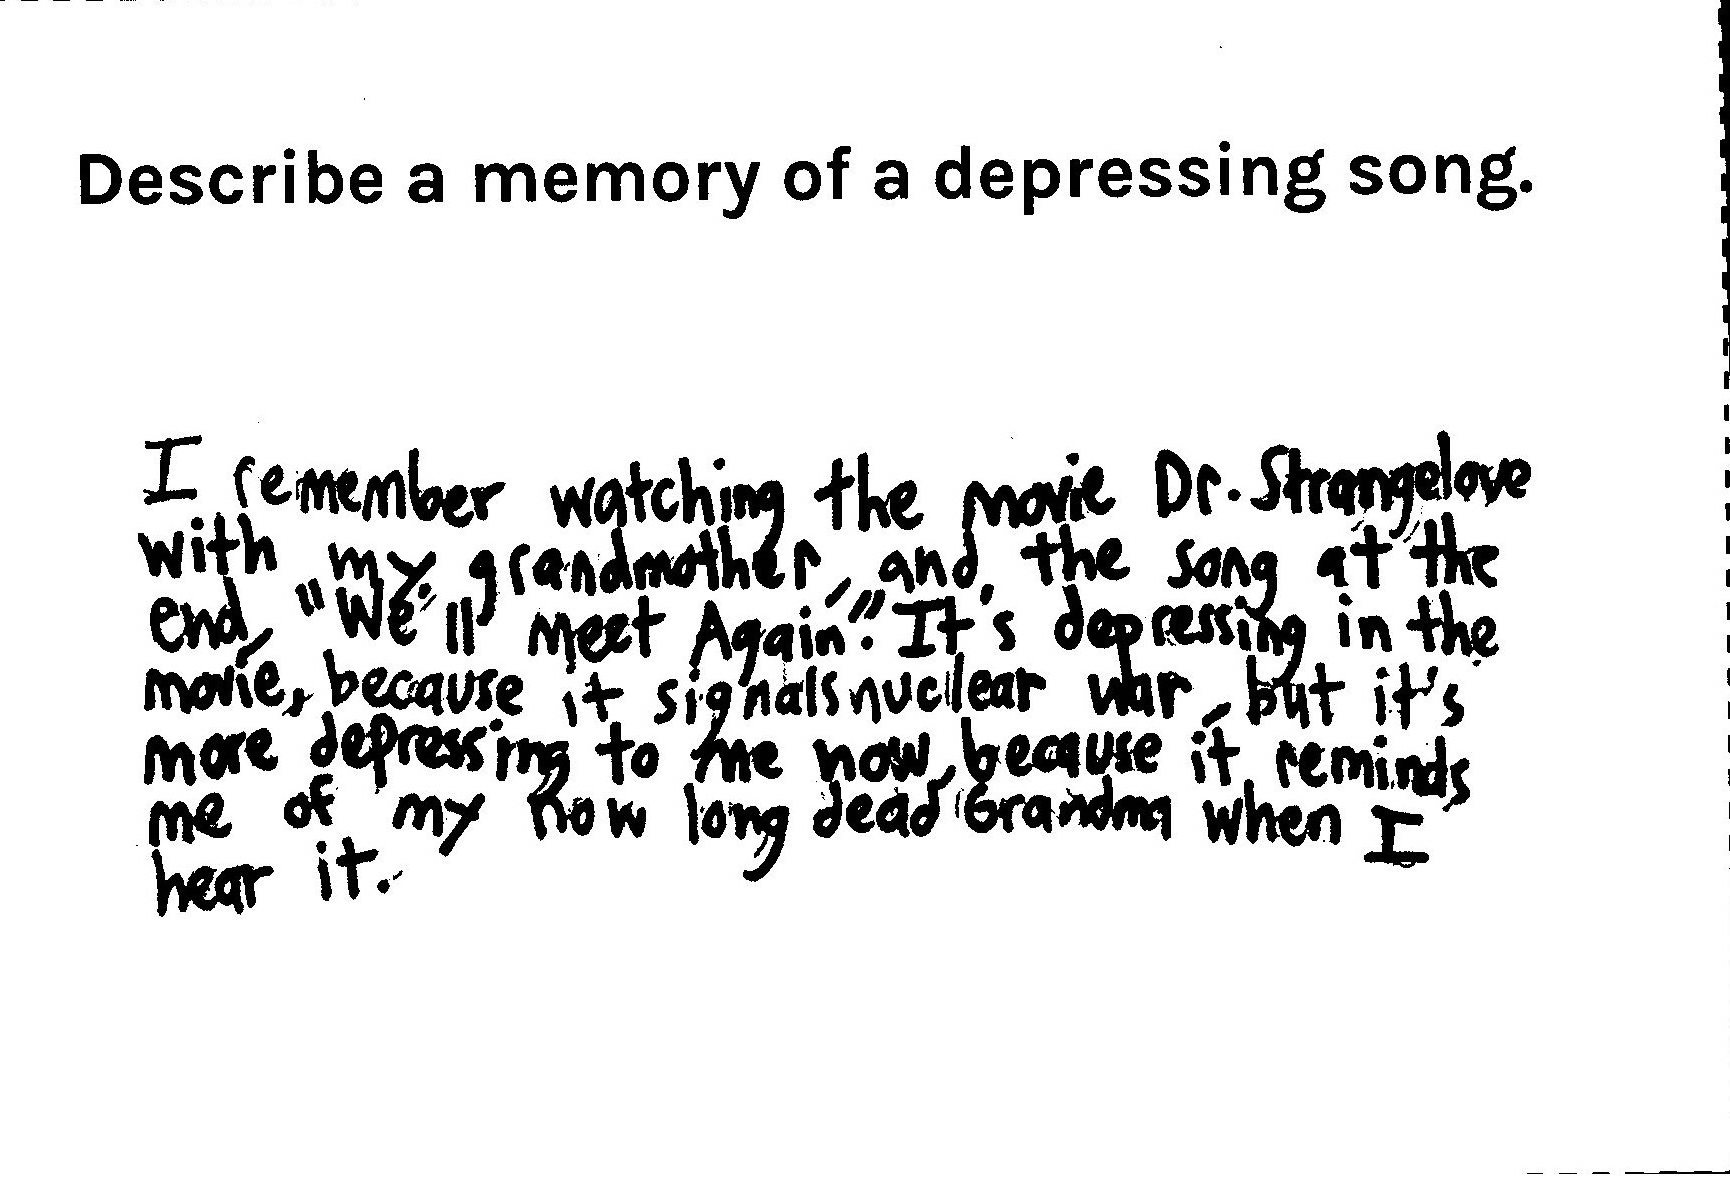 Describe a memory of a depressing song.
I remember watching the movie Dr. Strangelove
with my grandmother, and, the song at the
end, "We'll Meet Again". It's depressing in the
movie, because it signals nuclear war, but it's
more depressing to me now, because it reminds
me of my now long dead Grandma when I
hear it.